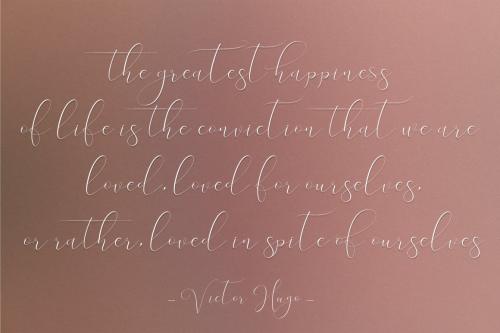 the greatest happiness
of life is the conviction that we are
loved, loved for ourselves,
or rather, loved in spite of ourselves
- Victor Hugo -